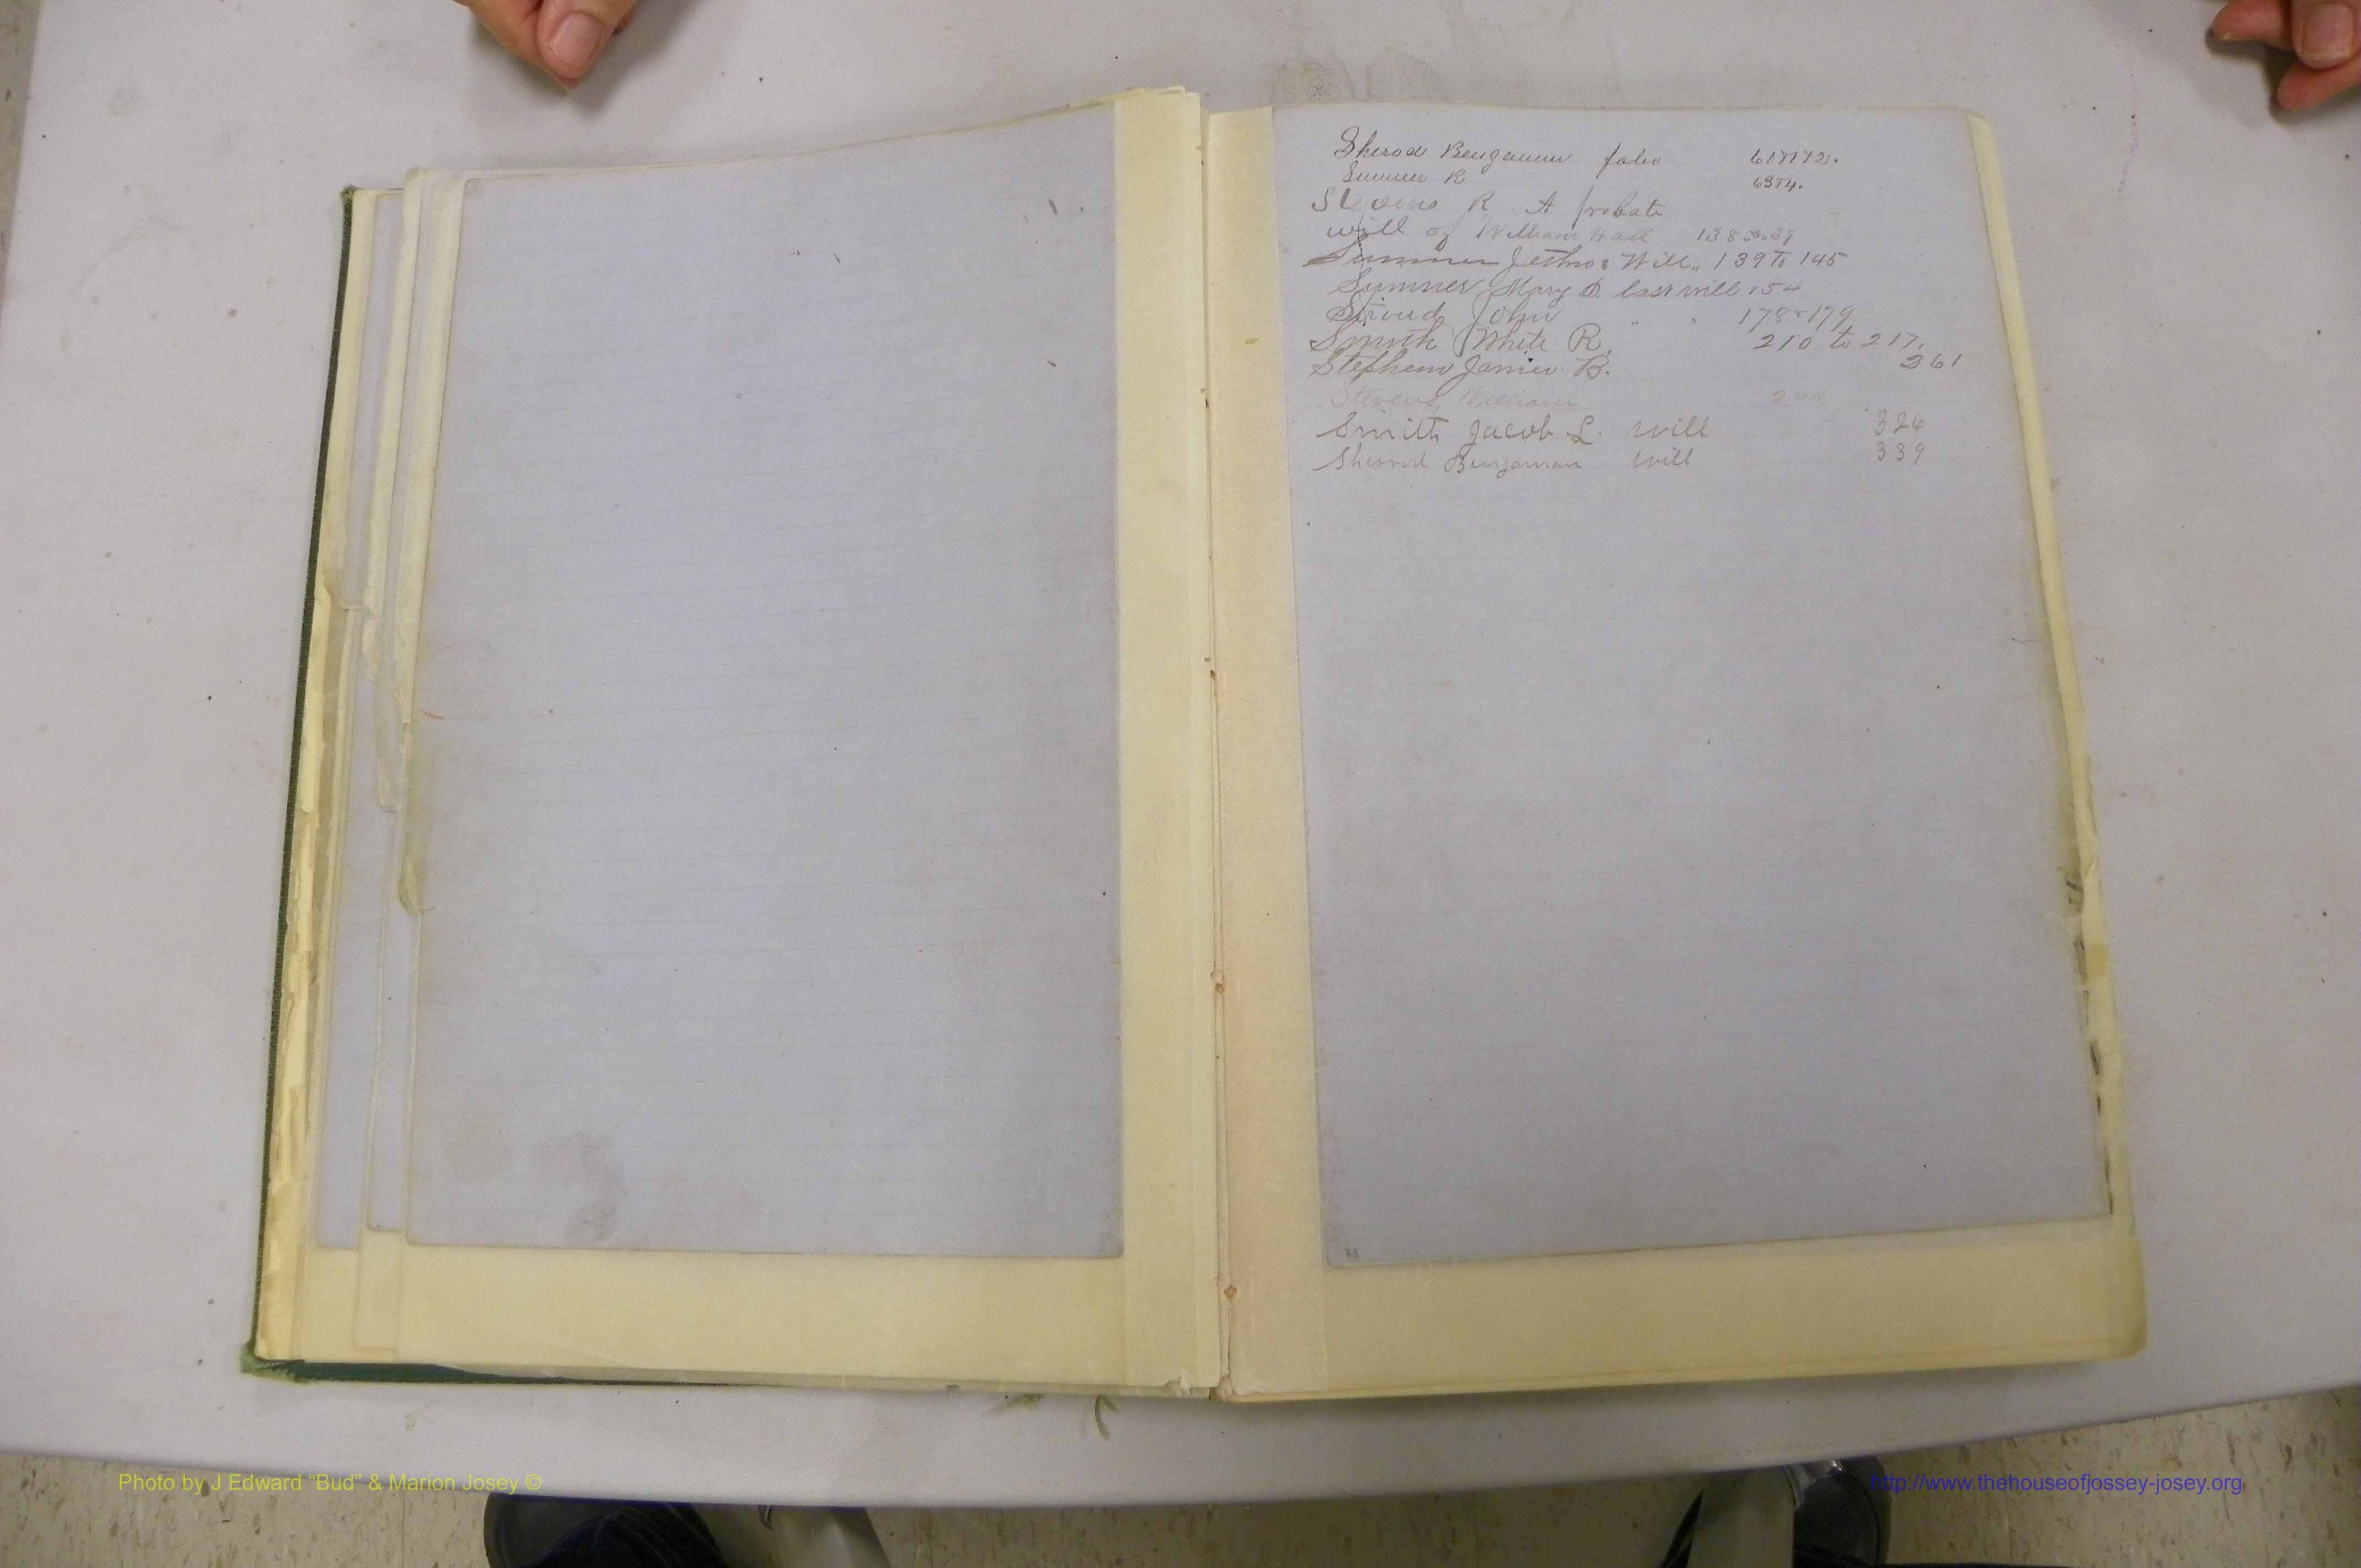 Sherod Benjamin folio
Sumner R
Stevens R A probate
will of William Hall 138
Sumner Jethro Will 139 To 145
Sumner Mary D. last will 154
Stroud John " " 178 & 179
Smith White R. 210 to 217.
Stephens James B. 261
Stevens, William
Smith Jacob L. will 326
Sherrod Benjaman will 339
33
Photo by J Edward “Bud” & Marion Josey ©
http://www.thehouseofjossey-josey.org